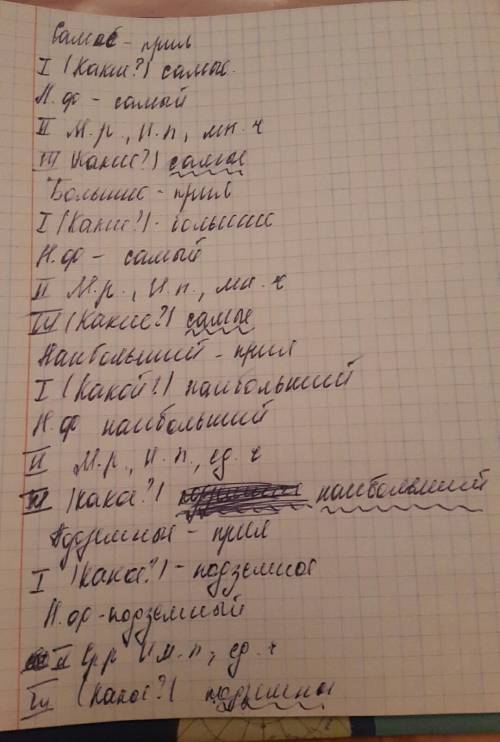 Самое - прил
I (Какие?) самые.
Н.ф - самый
II М.р., И.п., мн.ч
III (Какие?) самые
Большие - прил
I (Какие?) - большие
Н.ф - самый
II М.р., И.п., мн.ч
III (Какие?) самые
Наибольший - прил
I (Какой?) наибольший
Н.ф наибольший
II М.р., И.п., ед.ч
III (какое?) наибольший
Подземные - прил
I (Какое?) - подземное
Н.ф - подземный
II Ср.р Им.п, ед.ч
III (Какое?) подземное